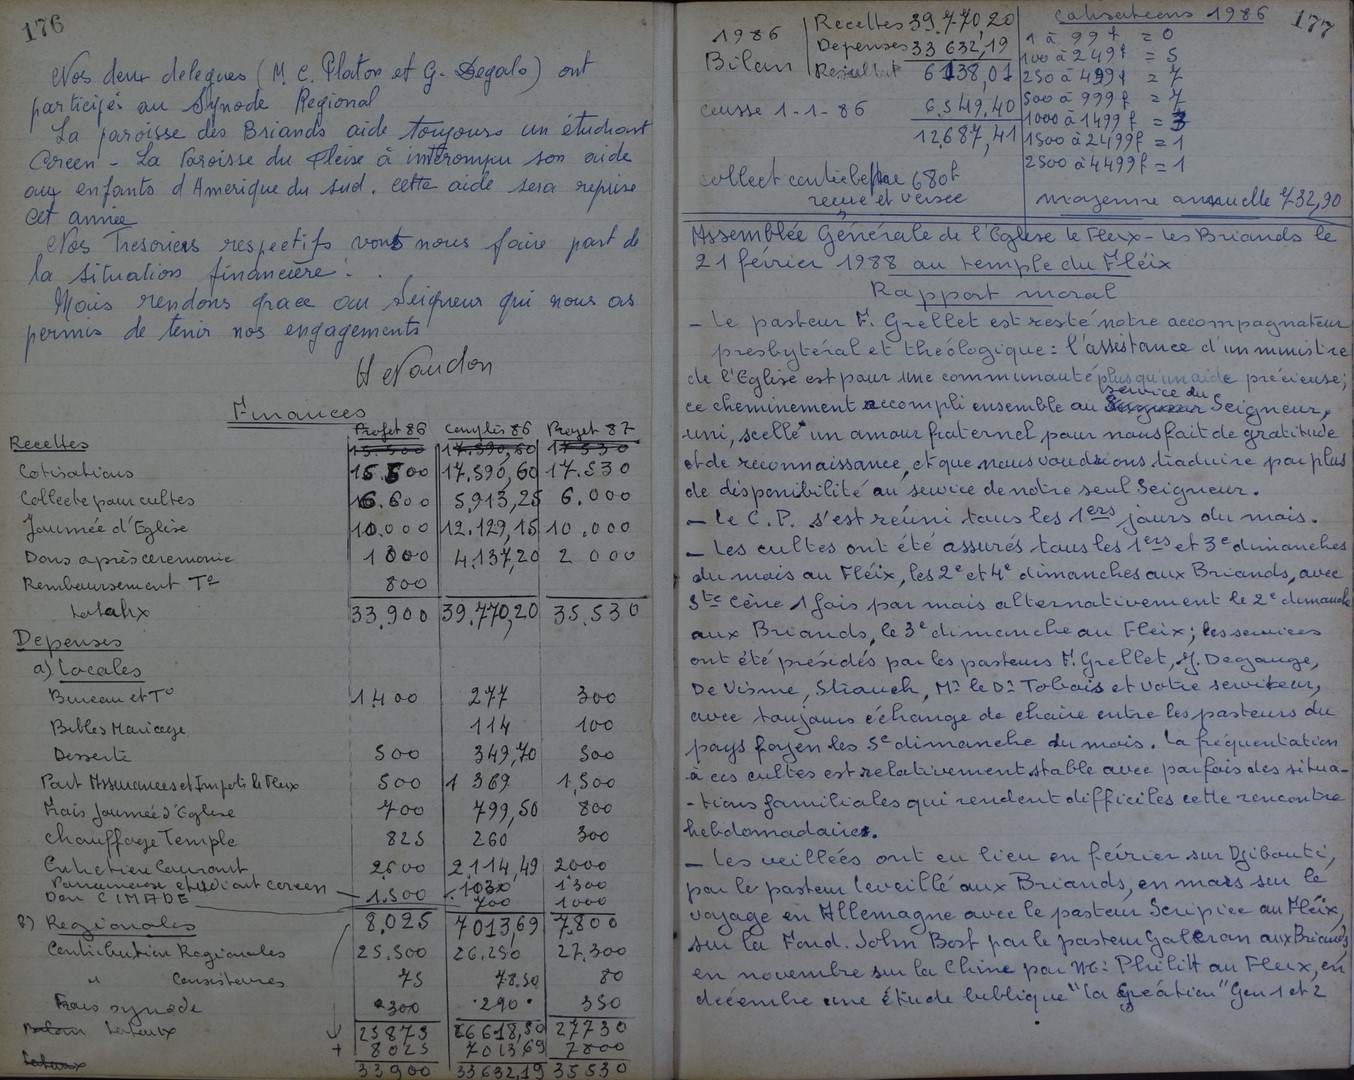 176
Nos deux delegues (M. C. Platon et G. Degals) ont
participés au Synode Regional
La paroisse des Briands aide toujours un étudiant
Coreen - La Paroisse du Fleix à interompu son aide
aux enfants d'Amerique du sud. cette aide sera reprise
cet année
Nos Tresoriers respectifs vont nous faire part de
la situation financière.
Mais rendons grace au Seigneur qui nous as
permis de tenir nos engagements
Finances
Projet 86 Comptes 86 Projet 87
Recettes 15.500 17.590,60 17530
Cotisations 15.500 17.590,60 17.530
Collecte pour cultes 6.600 5,913,25 6.000
Journée d'Eglise 10.000 12.129,15 10.000
Dons après ceremonie 1000 4.137,20 2000
Remboursement Te 800
totaux 33,900 39.770,20 35.530
Depenses
a) Locales
Bureau et To 1400 277 300
Bibles Mariage 114 100
Desserte 500 349,70 500
Part Assurances et Impots le Fleix 500 1369 1,500
Frais Journée d'Eglise 700 799,50 800
Chauffage Temple 825 260 300
Entretien Courant 2600 2.114,49 2000
étudiant coreen 1.500 1030 1300
Don CIMADE 700 1000
8,025 7013,69 7.800
B) Regionales
Contribution Regionales 25,500 26.250 27,300
" Consistoires 75 78,50 80
Frais synode 300 290 350
totaux 25875 26618,50 27730
+ 8025 7013,69 7800
totaux 33900 33632,19 35530
177
1986
Bilan
Recettes 39.770,20
Depenses 33 632,19
Resultat 6138,01
caisse 1-1-86 6,549,40
12687,41
680f
remie et versée
Cotisations 1986
1 à 99f = 0
100 à 249f = 5
250 à 499f = 7
500 à 999f = 7
1000 à 1499f = 3
1500 à 2499f = 1
2500 à 4499f = 1
moyenne annuelle 732,90
Assemblée Générale de l'Eglise le Fleix - les Briands le
21 février 1988 au temple du Fléix
Rapport moral
- Le pasteur F. Grellet est resté notre accompagnateur
presbytéral et théologique: l'assistance d'un ministre
de l'Eglise est pour une communauté plus qu'un aide précieuse;
service du
ce cheminement accompli ensemble au Seigneur,
uni, scellé un amour fraternel pour nous fait de gratitude
et de reconnaissance, et que nous voudrions traduire par plus
de disponibilité au service de notre seul Seigneur.
- le C.P. s'est réuni tous les 1ers jours du mois.
- Les cultes ont été assurés tous les 1ers et 3e dimanches
du mois au Fléix, les 2e et 4e dimanches aux Briands, avec
Ste Cène 1 fois par mois alternativement le 2e dimanche
aux Briands, le 3e dimanche au Fleix; les services
ont été présidés par les pasteurs F. Grellet, Degauge,
De Visme, Strauch, Mr le Dr Tobais et votre serviteur,
avec toujours échange de chaire entre les pasteurs du
pays foyen les 5e dimanche du mois. La fréquentation
à ces cultes est relativement stable avec parfois des situa-
-tions familiales qui rendent difficiles cette rencontre
hebdomadaire.
- Les veillées ont eu lieu en février sur Djibouti,
par le pasteur Leveillé aux Briands, en mars sur le
voyage en Allemagne avec le pasteur au Fléix,
sur la Fond. John Bost par le pasteur Galtran aux Briands,
en novembre sur la Chine par Philitt au Fleix, en
décembre une étude biblique "la création" Gen 1 et 2